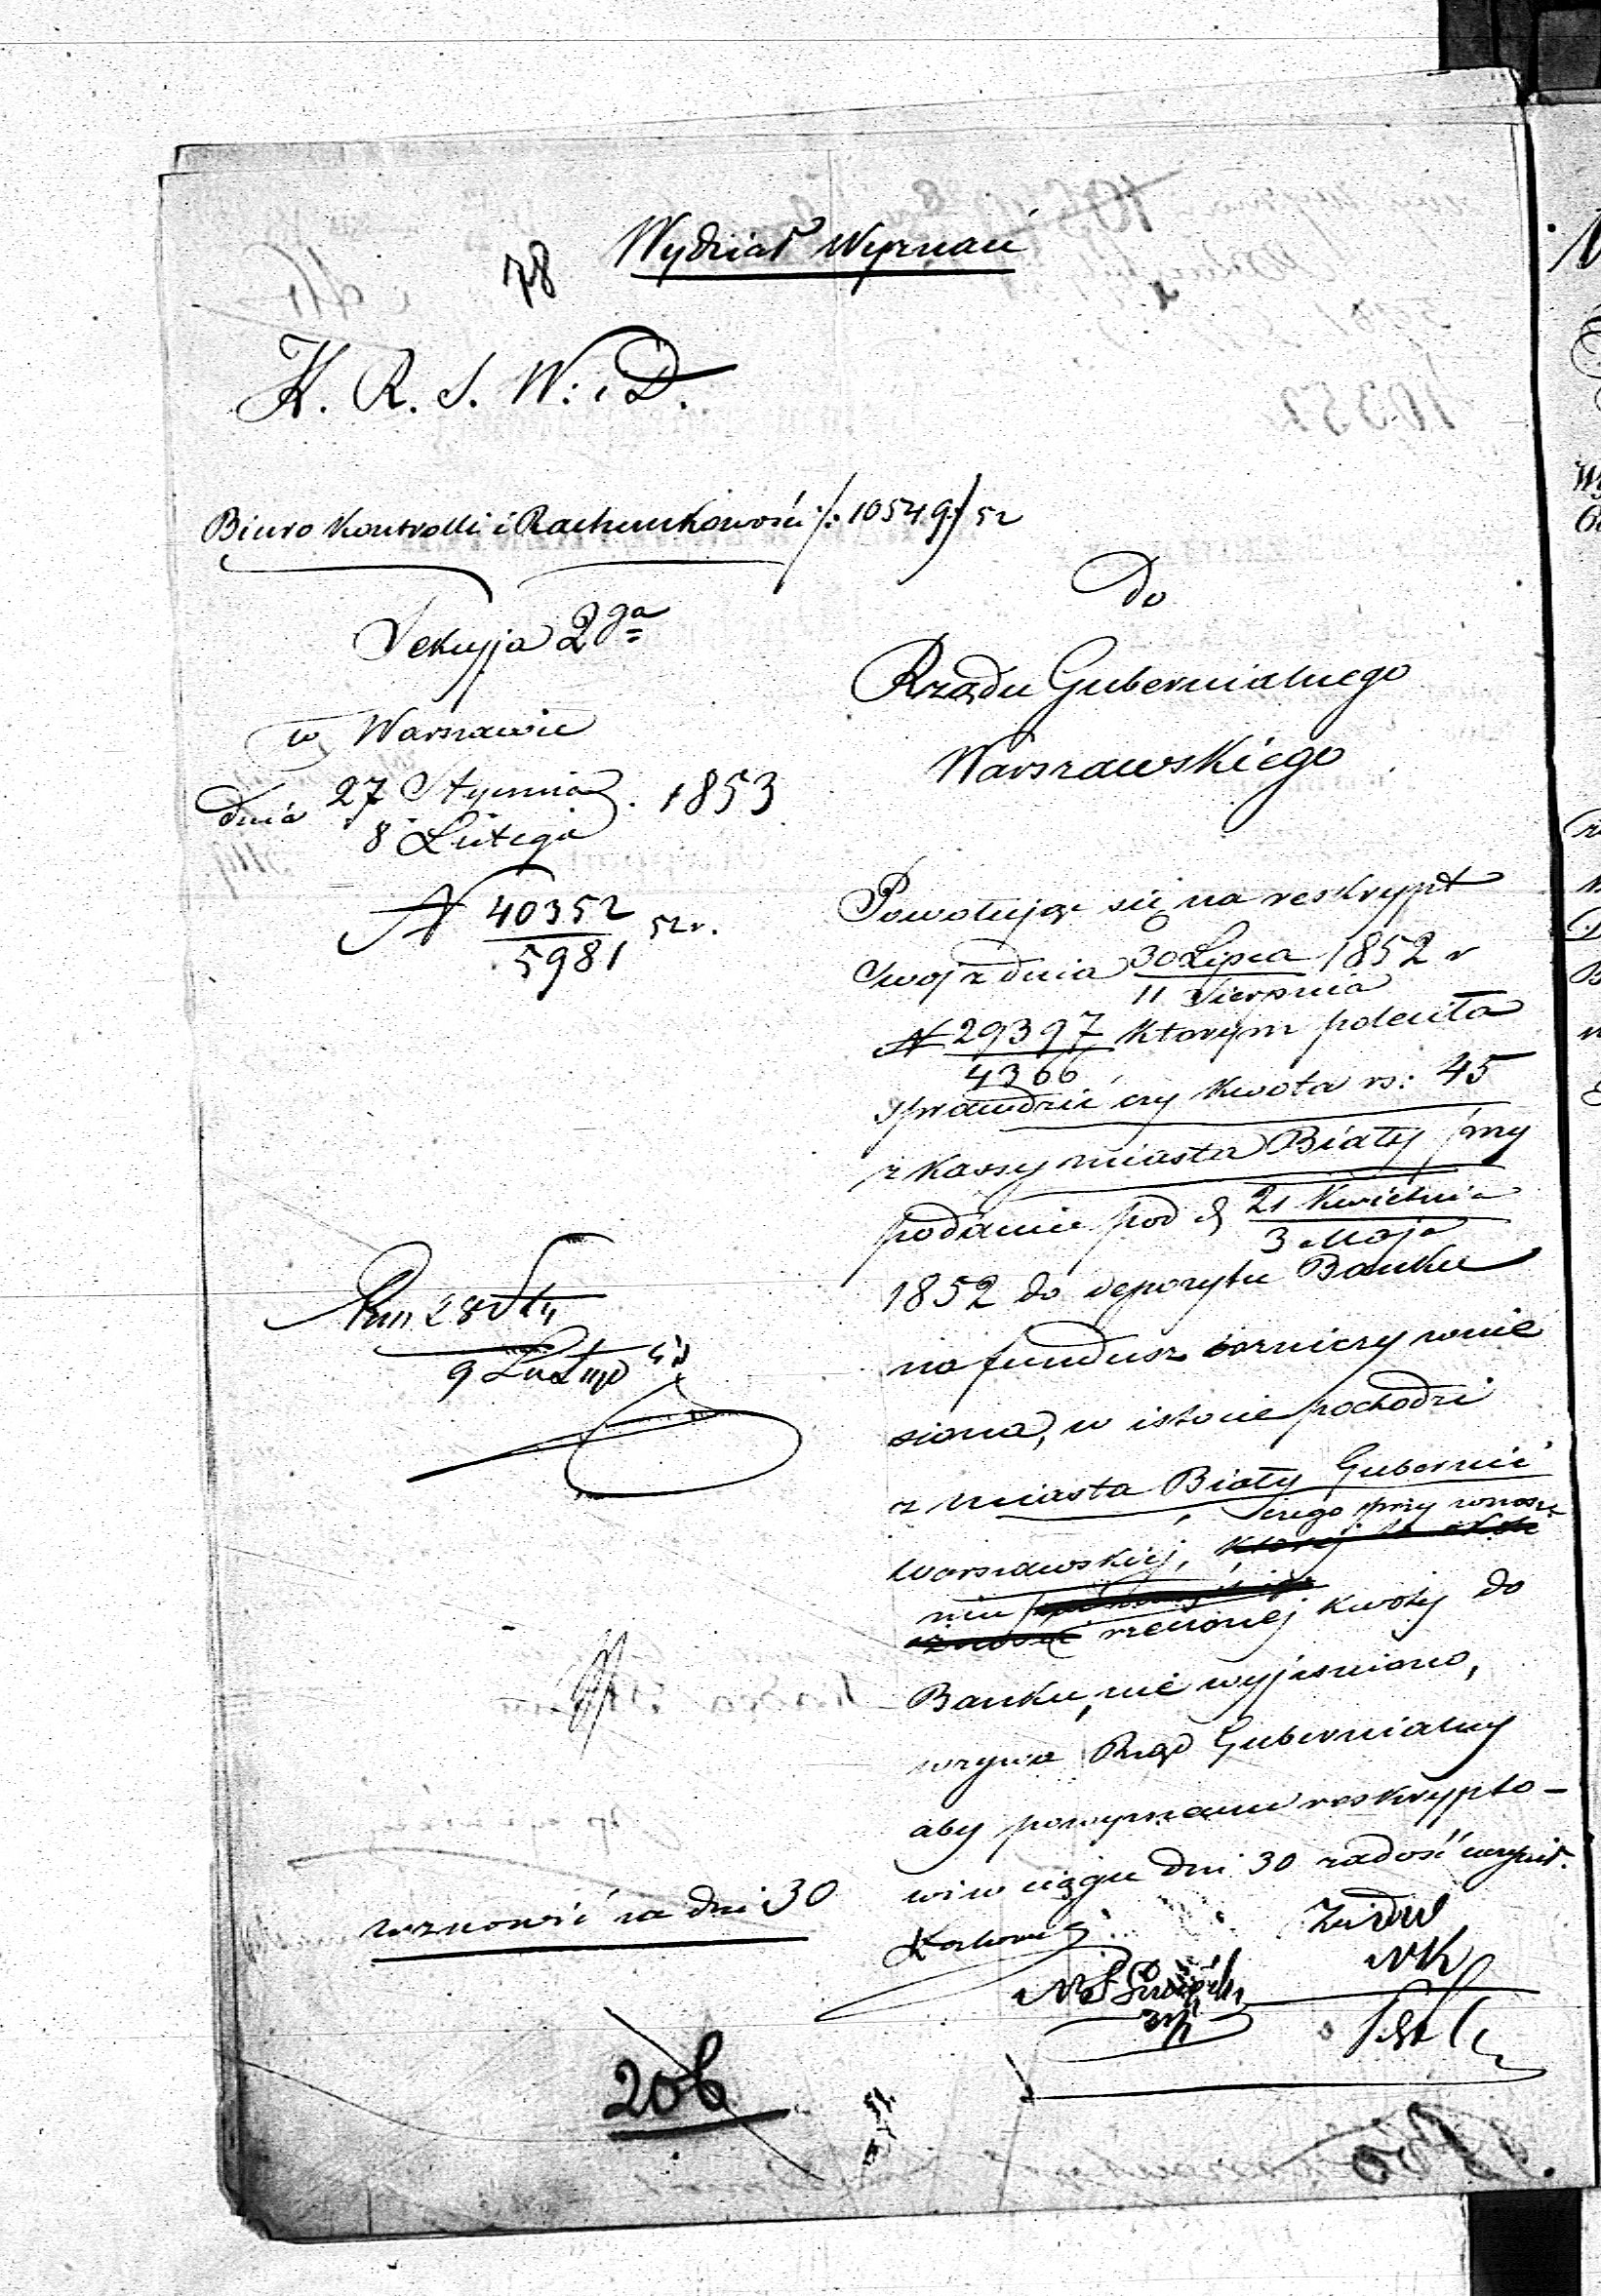 78 Wydział Wyznań
K. R. S. W. i D.
Biuro Kontrolli i Rachunkowości /: 10549 :/ 52
Sekcyja 2ga
w Warszawie
dnia 27 Stycznia 1853
8 Lutego
N 40352 52 r.
5981
Do
Rządu Gubernialnego
Warszawskiego
Powołując się na reskrypt
swoj z dnia 30 Lipca 1852 r
11 Sierpnia
N 29397 ktorym poleciła
4366
sprawdzić czy kwota rs: 45
z kassy miasta Biały przy
podanie pod d 21 Kwietnia
3 Maja
1852 do depozytu Banku
na fundusz bożniczy wnie
siona, w istocie pochodzi
z miasta Biały Gubernii
Warszawskiej, czego przy wnosze
niu rzeczonej kwoty do
Banku, nie wyjaśniono,
wzywa Rząd Gubernialny
aby powyższemu reskrypto-
wi w ciągu dni 30 zadość uczynił.
28 Sty
9 Lutego
wznowić za dni 30
206